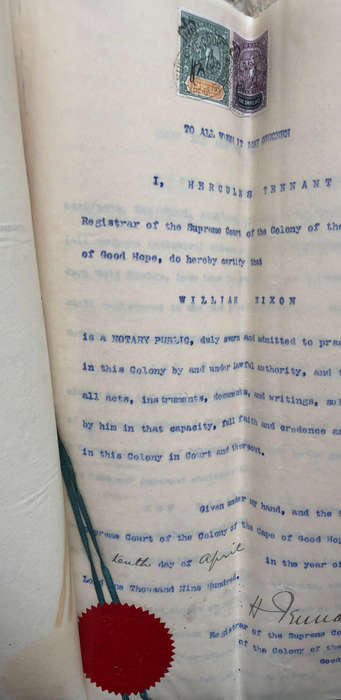 TO ALL WHOM IT MAY CONCERN
I, HERCULES TENNANT
Registrar of the Supreme Court of the Colony of the
of Good Hope, do hereby certify that
WILLIAM NIXON
is a NOTARY PUBLIC, duly sworn and admitted to prac
in this Colony by and under lawful authority, and
all acts, instruments, documents, and writings, su
by him in that capacity, full faith and credence a
in this Colony in Court and thereout.
Given under my hand, and the
Supreme Court of the Colony of the Cape of Good Hop
tenth day of April in the year of
Lord One Thousand Nine Hundred.
H Tenna
Registrar of the Supreme Co
of the Colony of the
Good